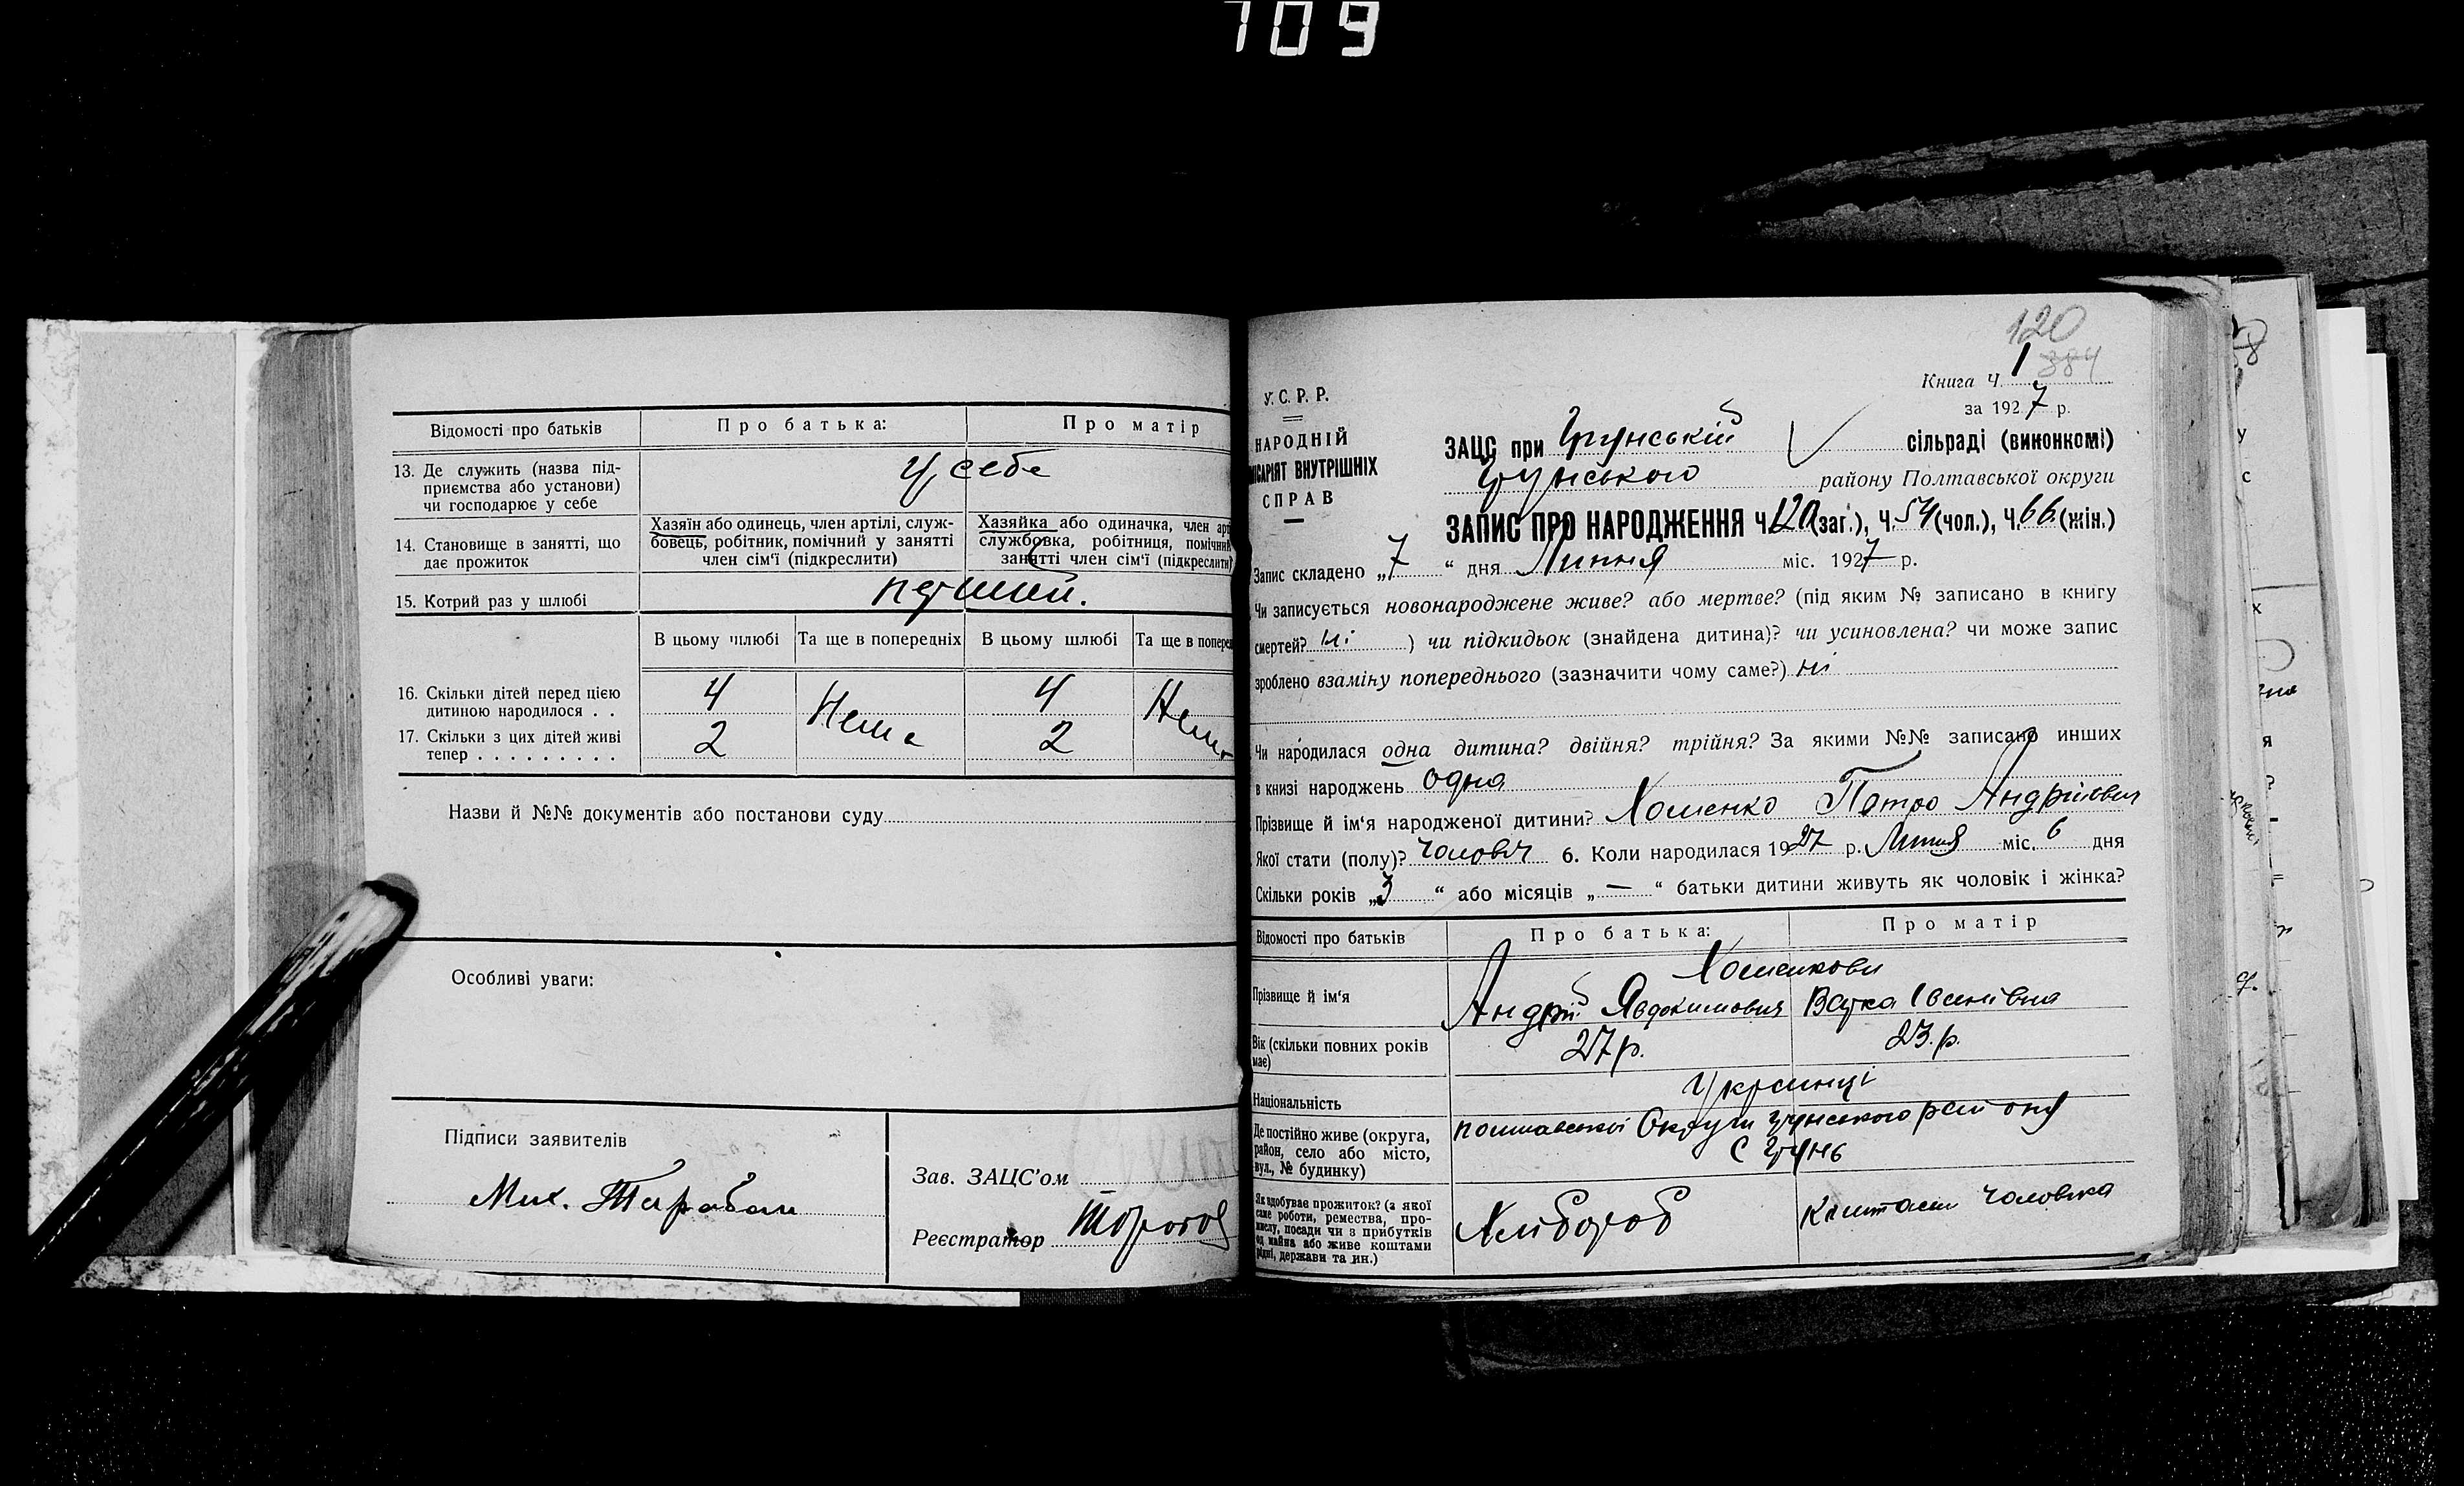 109
Відомості про батьків
Про батька:
Про матір
13. Де служить (назва під-
приємства або установи)
чи господарює у себе
У себе
14. Становище в занятті, що
дає прожиток
Хазяїн або одинець, член артілі, служ-
бовець, робітник, помічний у занятті
член сім'ї (підкреслити)
Хазяйка або одиначка, член арті
службовка, робітниця, помічний
занятті член сім'ї (підкреслити)
15. Котрий раз у шлюбі
перший.
В цьому шлюбі
Та ще в попередніх
В цьому шлюбі
Та ще в попере
16. Скільки дітей перед цією
дитиною народилося . .
4
Нема
4
Нема
17. Скільки з цих дітей живі
тепер . . . . . . . . .
2
2
Назви й №№ документів або постанови суду
Особливі уваги:
Підписи заявителів
Мих. Тарабан
Зав. ЗАЦС'ом
Реєстратор
120
384
Книга Ч. 1
за 1927 р.
У.С.Р.Р.
НАРОДНІЙ
ІСАРІЯТ ВНУТРІШНІХ
СПРАВ
ЗАЦС при Грунській сільраді (виконкомі)
Грунського району Полтавської округи
ЗАПИС ПРО НАРОДЖЕННЯ Ч. 120 (заг.), Ч. 54 (чол.), Ч. 66. (жін.)
Запис складено „7“ дня Липня міс. 1927 р.
Чи записується новонароджене живе? або мертве? (під яким № записано в книгу
смертей? ні ) чи підкидьок (знайдена дитина)? чи усиновлена? чи може запис
зроблено взаміну попереднього (зазначити чому саме?) ні
Чи народилася одна дитина? двійня? трійня? За якими №№ записано инших
в книзі народжень одна
Прізвище й ім'я народженої дитини? Хоменко Петро Андрійович
Якої стати (полу)? чоловіч 6. Коли народилася 1927 р. Липня міс. 6 дня
Скільки років „3“ або місяців „—“ батьки дитини живуть як чоловік і жінка?
Відомості про батьків
Про батька:
Про матір
Прізвище й ім'я
Хоменкови
Андрій Явдокимович
Іванівна
Вік (скільки повних років
має)
27 р.
23. р.
Національність
Українці
Де постійно живе (округа,
район, село або місто,
вул., № будинку)
полтавської Округи Грунського району
С Грунь
Як здобуває прожиток? (з якої
саме роботи, ремества, про-
мислу, посади чи з прибутків
од майна або живе коштами
рідні, держави та ин.)
Хлібороб
Коштами чоловіка